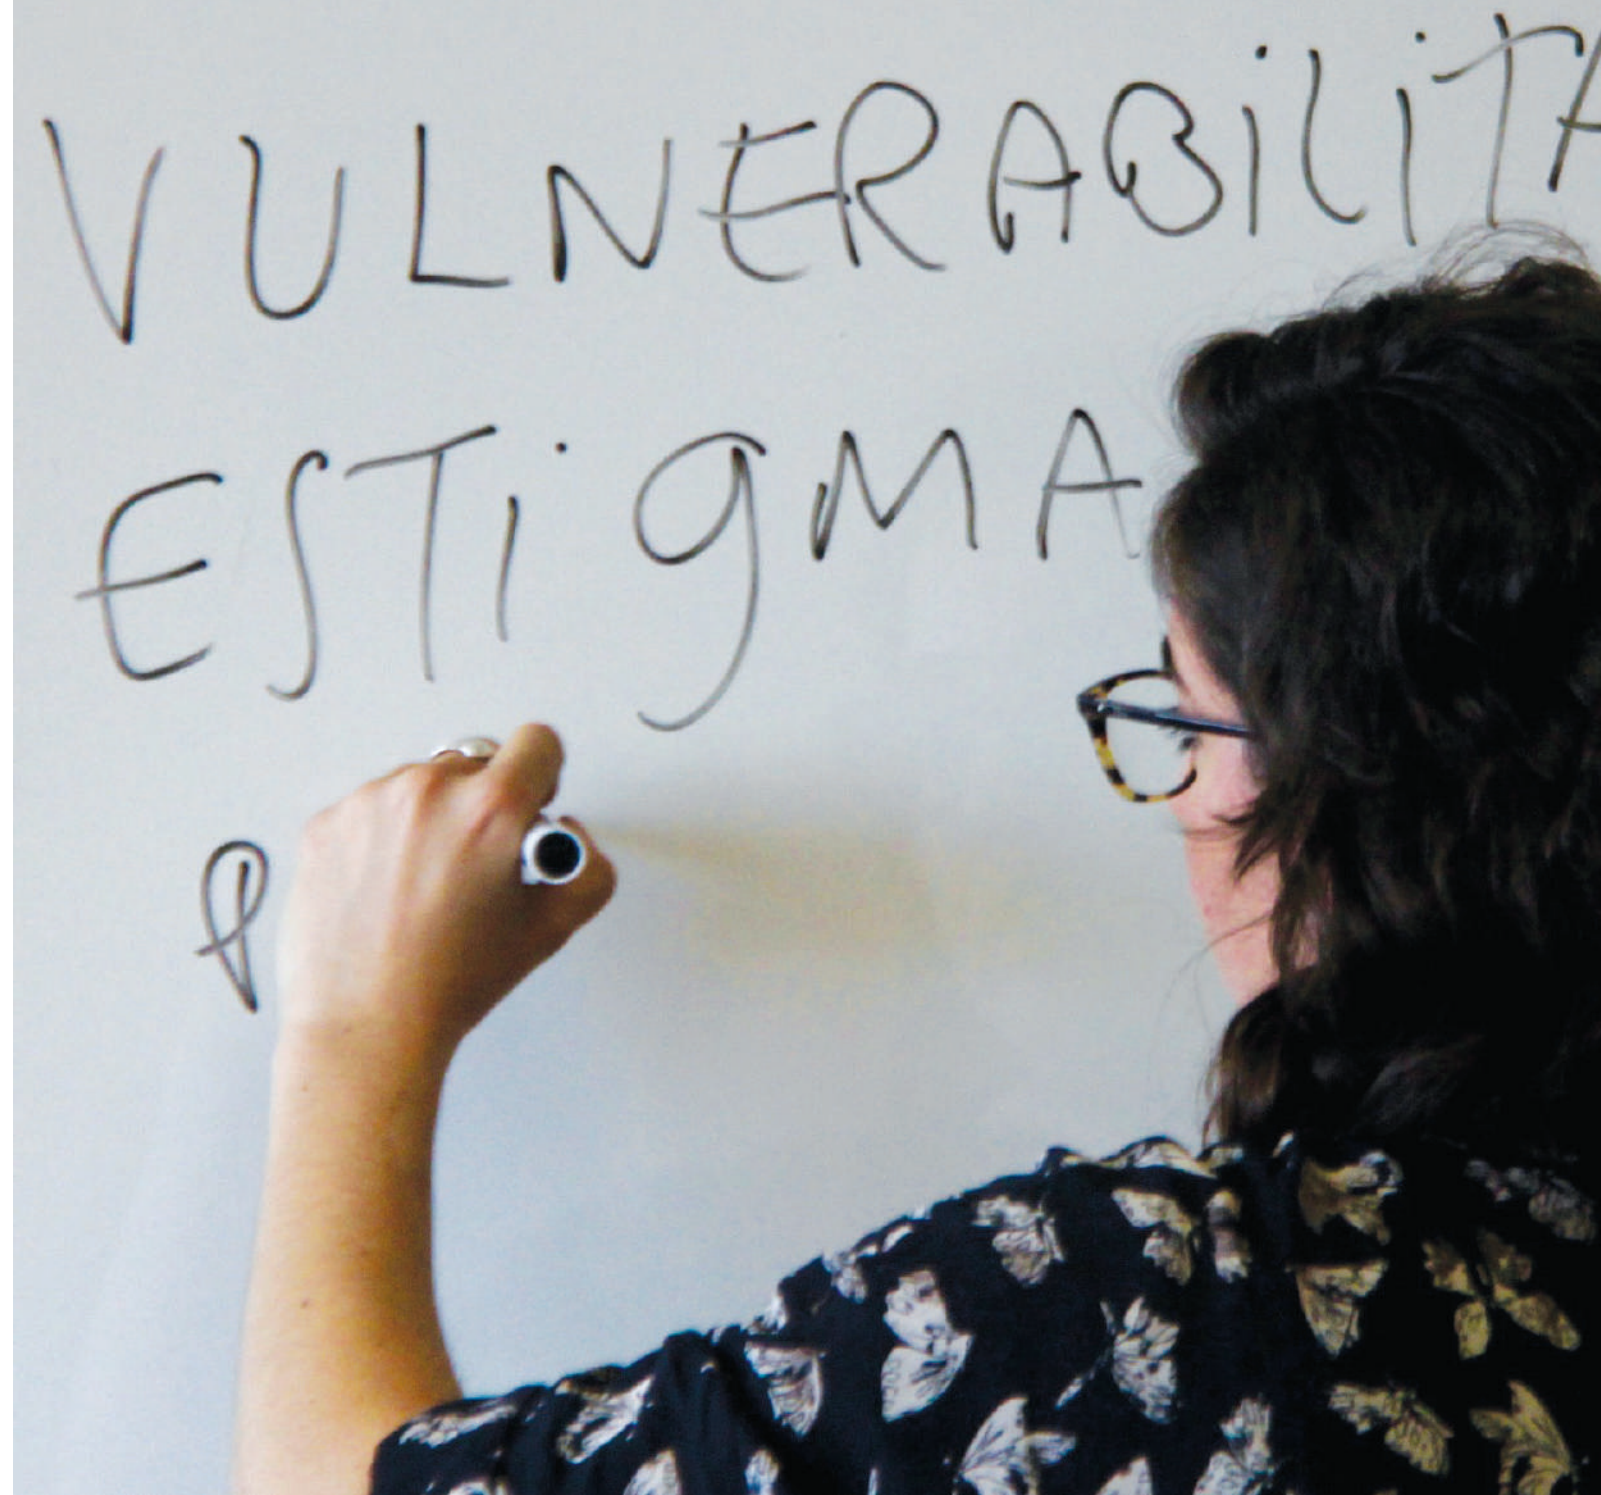 VULNERABILITA
ESTIGMA
P